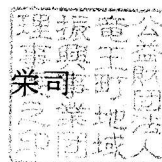 公益財団法人
竜王町地域
振興事業団
理事長印
栄司